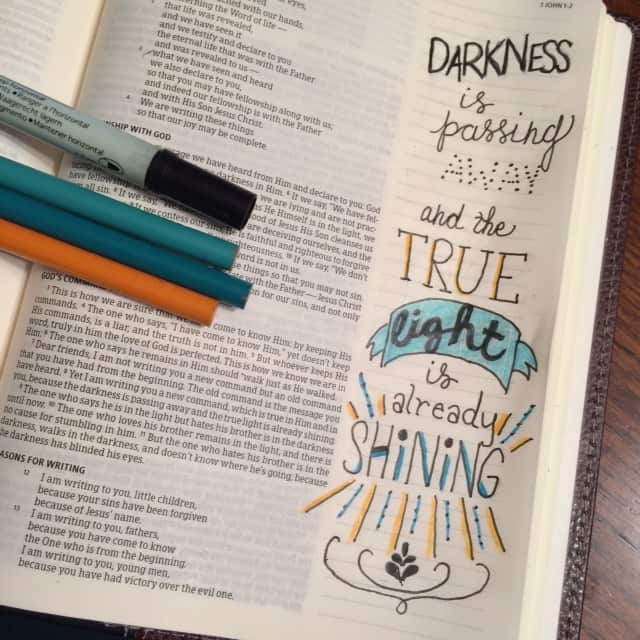 1 JOHN 1-2
with our hands,
concerning the Word of life —
that life was revealed,
and we have seen it
and we testify and declare to you
the eternal life that was with the Father
and was revealed to us —
3 what we have seen and heard
we also declare to you,
so that you may have fellowship along with us;
and indeed our fellowship is with the Father
and with His Son Jesus Christ.
4 We are writing these things
so that our joy may be complete.
WITH GOD
we have heard from Him and declare to you: God
darkness in Him. 6 If we say, "We have
we are lying and are not
He Himself is in the light, we
blood of Jesus His Son cleanses us
all sin. 8 If we say,
we are deceiving ourselves, and the
confess our sins, He is faithful and righteous to forgive
10 If we say, "We don't
word is not in us.
things so that you may not sin.
the Father — Jesus Christ
for our sins, and not only
GOD'S
3 This is how we are sure that we have come to know Him: by keeping His
commands. 4 The one who says, "I have come to know Him," yet doesn't keep
His commands, is a liar, and the truth is not in him. 5 But whoever keeps His
word, truly in him the love of God is perfected. This is how we know we are in
Him: 6 The one who says he remains in Him should walk just as He walked.
7 Dear friends, I am not writing you a new command but an old command
that you have had from the beginning. The old command is the message you
have heard. 8 Yet I am writing you a new command, which is true in Him and in
you, because the darkness is passing away and the true light is already shining.
9 The one who says he is in the light but hates his brother is in the darkness
until now. 10 The one who loves his brother remains in the light, and there is
no cause for stumbling in him. 11 But the one who hates his brother is in the
darkness, walks in the darkness, and doesn't know where he's going, because
the darkness has blinded his eyes.
REASONS FOR WRITING
12 I am writing to you, little children,
because your sins have been forgiven
because of Jesus' name.
13 I am writing to you, fathers,
because you have come to know
the One who is from the beginning.
I am writing to you, young men,
because you have had victory over the evil one.
DARKNESS
is
passing
AWAY
and the
TRUE
light
is
already
SHINING